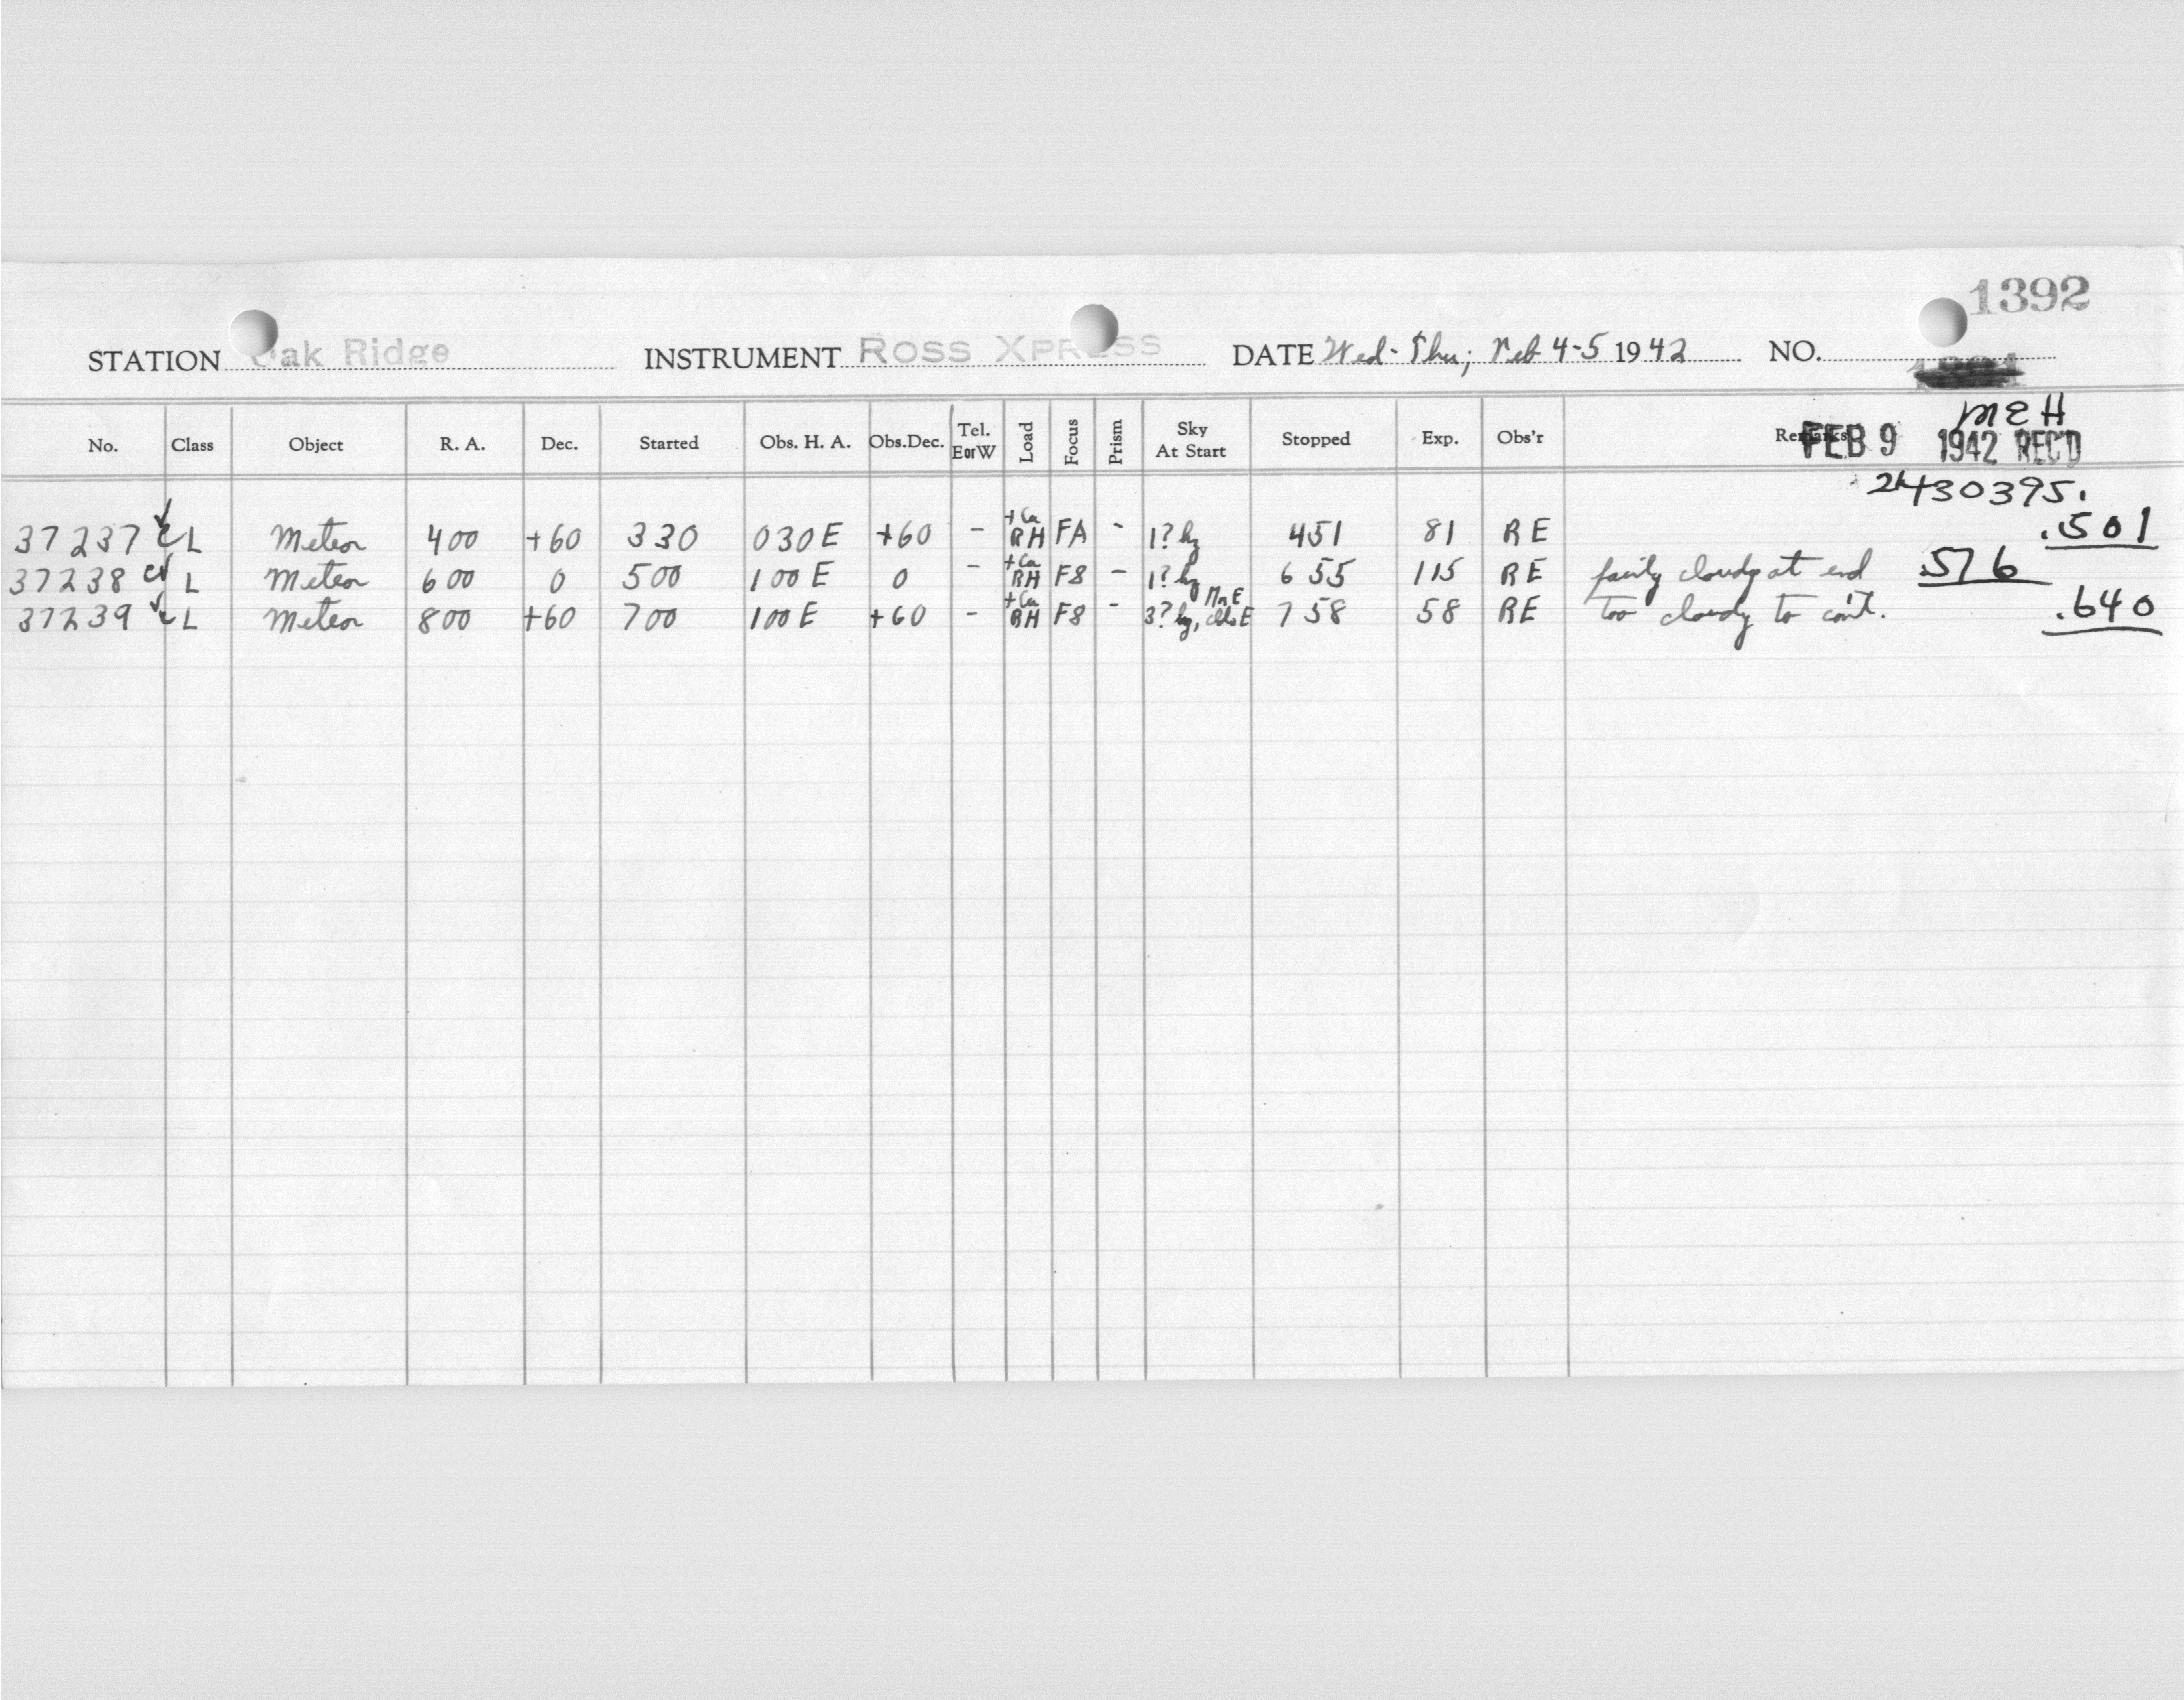 1392
STATION Oak Ridge INSTRUMENT ROSS XPRESS DATE Wed-Thu; Feb 4-5 1942 NO.
MEH
No. Class Object R. A. Dec. Started Obs. H. A. Obs.Dec. Tel. E or W Load Focus Prism Sky At Start Stopped Exp. Obs'r Remarks
FEB 9 1942 REC'D
2430395.
37237 c L Meteor 400 +60 330 030 E +60 - +Ca RH FA - 1? hy 451 81 RE .501
37238 c L Meteor 600 0 500 100 E 0 - +Ca RH F8 - 1? hy 655 115 RE fairly cloudy at end .576
37239 c L Meteor 800 +60 700 100 E +60 - +Ca RH F8 - 3? hy, clds E Mn E 758 58 RE too cloudy to con't. .640